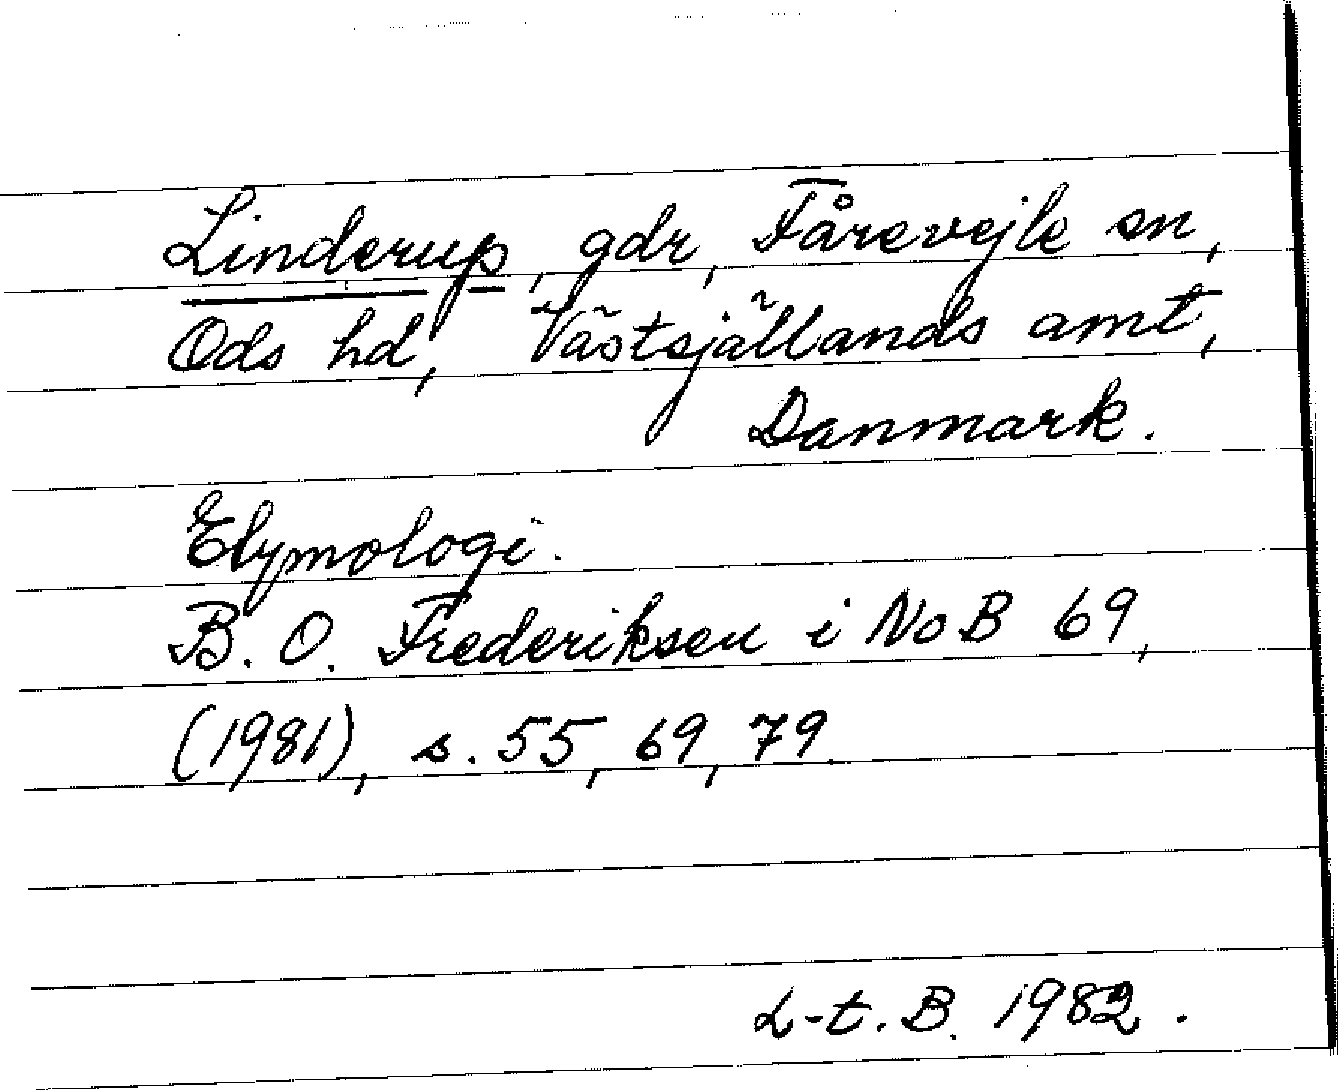 Linderup, gdr, Fårevejle sn,
Ods hd, Västsjällands amt,
Danmark.
Etymologi.
B. O. Frederiksen i NoB 69,
(1981), s. 55, 69, 79.
L-t. B. 1982.